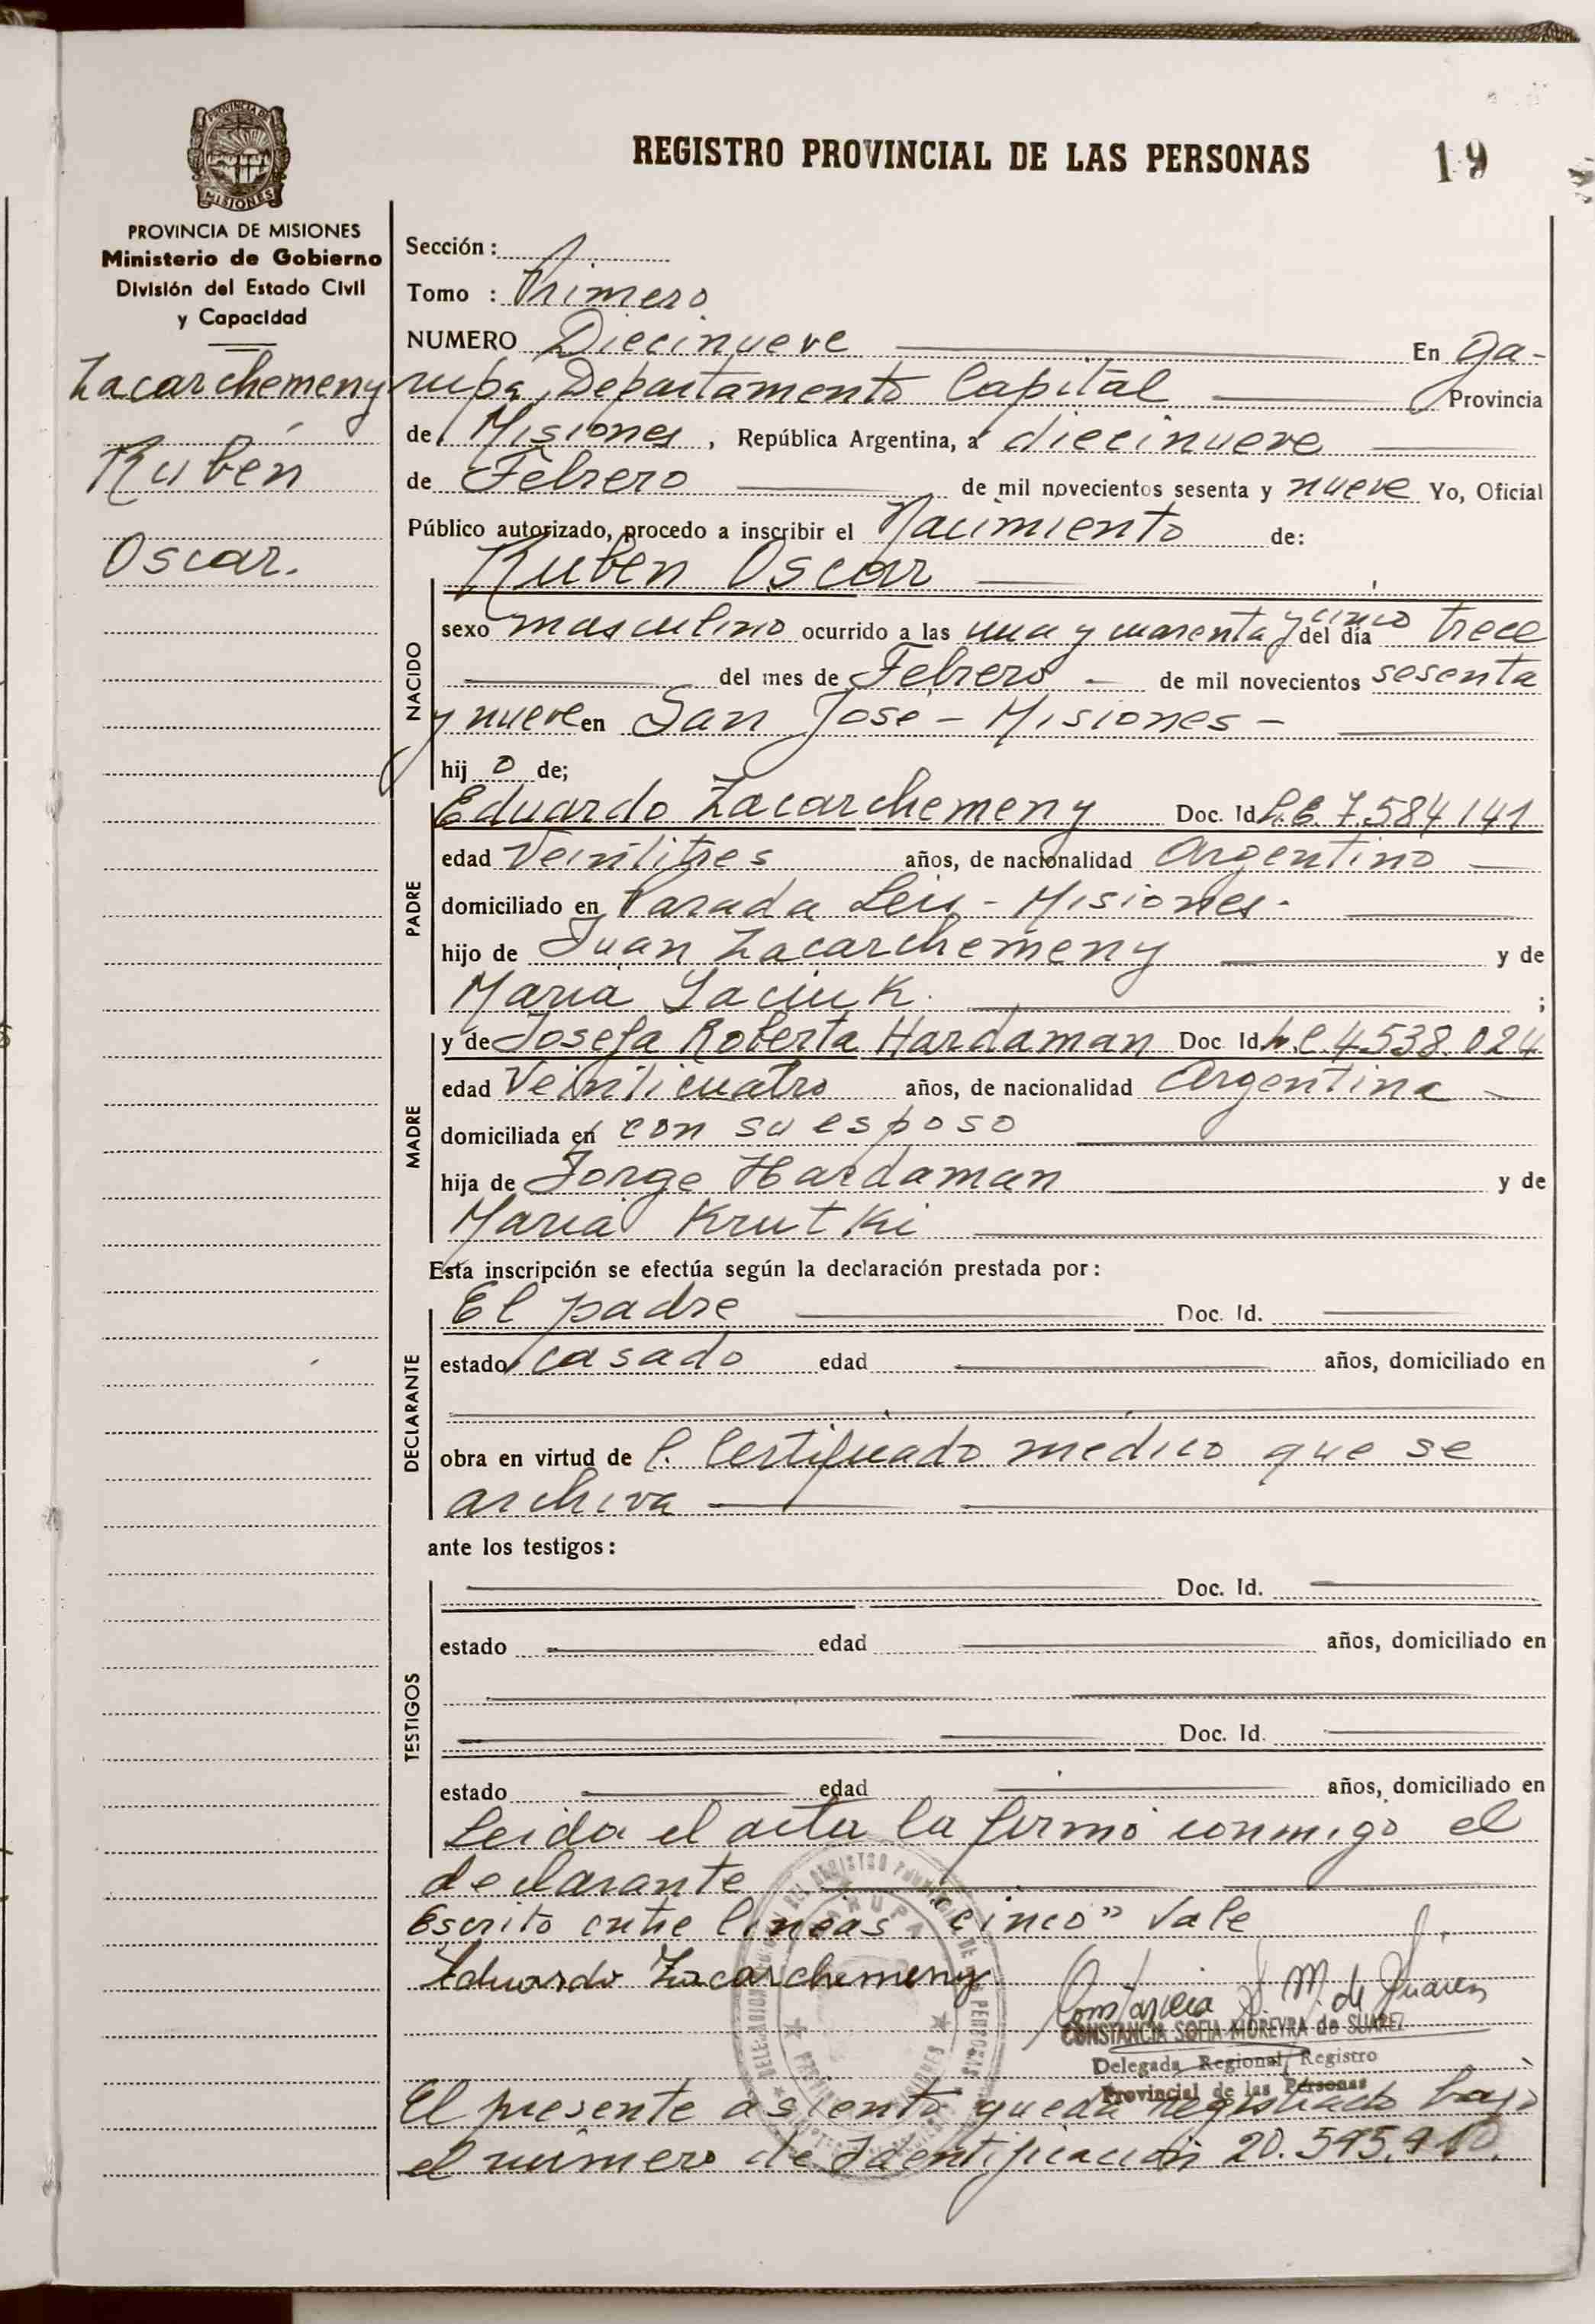 PROVINCIA DE MISIONES
REGISTRO PROVINCIAL DE LAS PERSONAS
19
PROVINCIA DE MISIONES
Ministerio de Gobierno
División del Estado Civil
y Capacidad
Zacarchemeny
Rubén
Oscar.
Sección :
Tomo : Primero
NUMERO Diecinueve En Ga-
rupa, Departamento Capital Provincia
de Misiones, República Argentina, a diecinueve
de Febrero de mil novecientos sesenta y nueve Yo, Oficial
Público autorizado, procedo a inscribir el Nacimiento de:
Rubén Oscar
NACIDO
sexo masculino ocurrido a las una y cuarenta y cinco del día trece
del mes de Febrero de mil novecientos sesenta
y nueve en San José - Misiones -
hij o de;
PADRE
Eduardo Zacarchemeny Doc. Id. L.E. 7.584141
edad Veintitres años, de nacionalidad Argentino
domiciliado en Parada Leis - Misiones -
hijo de Juan Zacarchemeny y de
Maria ;
MADRE
y de Josefa Roberta Hardaman Doc Id. L.C. 4538.024
edad Veinticuatro años, de nacionalidad Argentina
domiciliada en con su esposo
hija de Jorge Hardaman y de
Maria Krutki
Esta inscripción se efectúa según la declaración prestada por :
DECLARANTE
El padre Doc. Id.
estado casado edad años, domiciliado en
obra en virtud de Certificado medico que se
archiva
ante los testigos :
TESTIGOS
Doc. Id.
estado edad años, domiciliado en
Doc. Id.
estado edad años, domiciliado en
Leida el acta la firmó conmigo el
declarante
Escrito entre lineas "cinco" Vale
Eduardo Zacarchemeny
Constancia S M. de Suarez
CONSTANCIA SOFIA MOREYRA de SUAREZ
Delegada Regional Registro
Provincial de las Personas
El presente asiento queda registrado bajo
el número de Identificación 20.595.910.